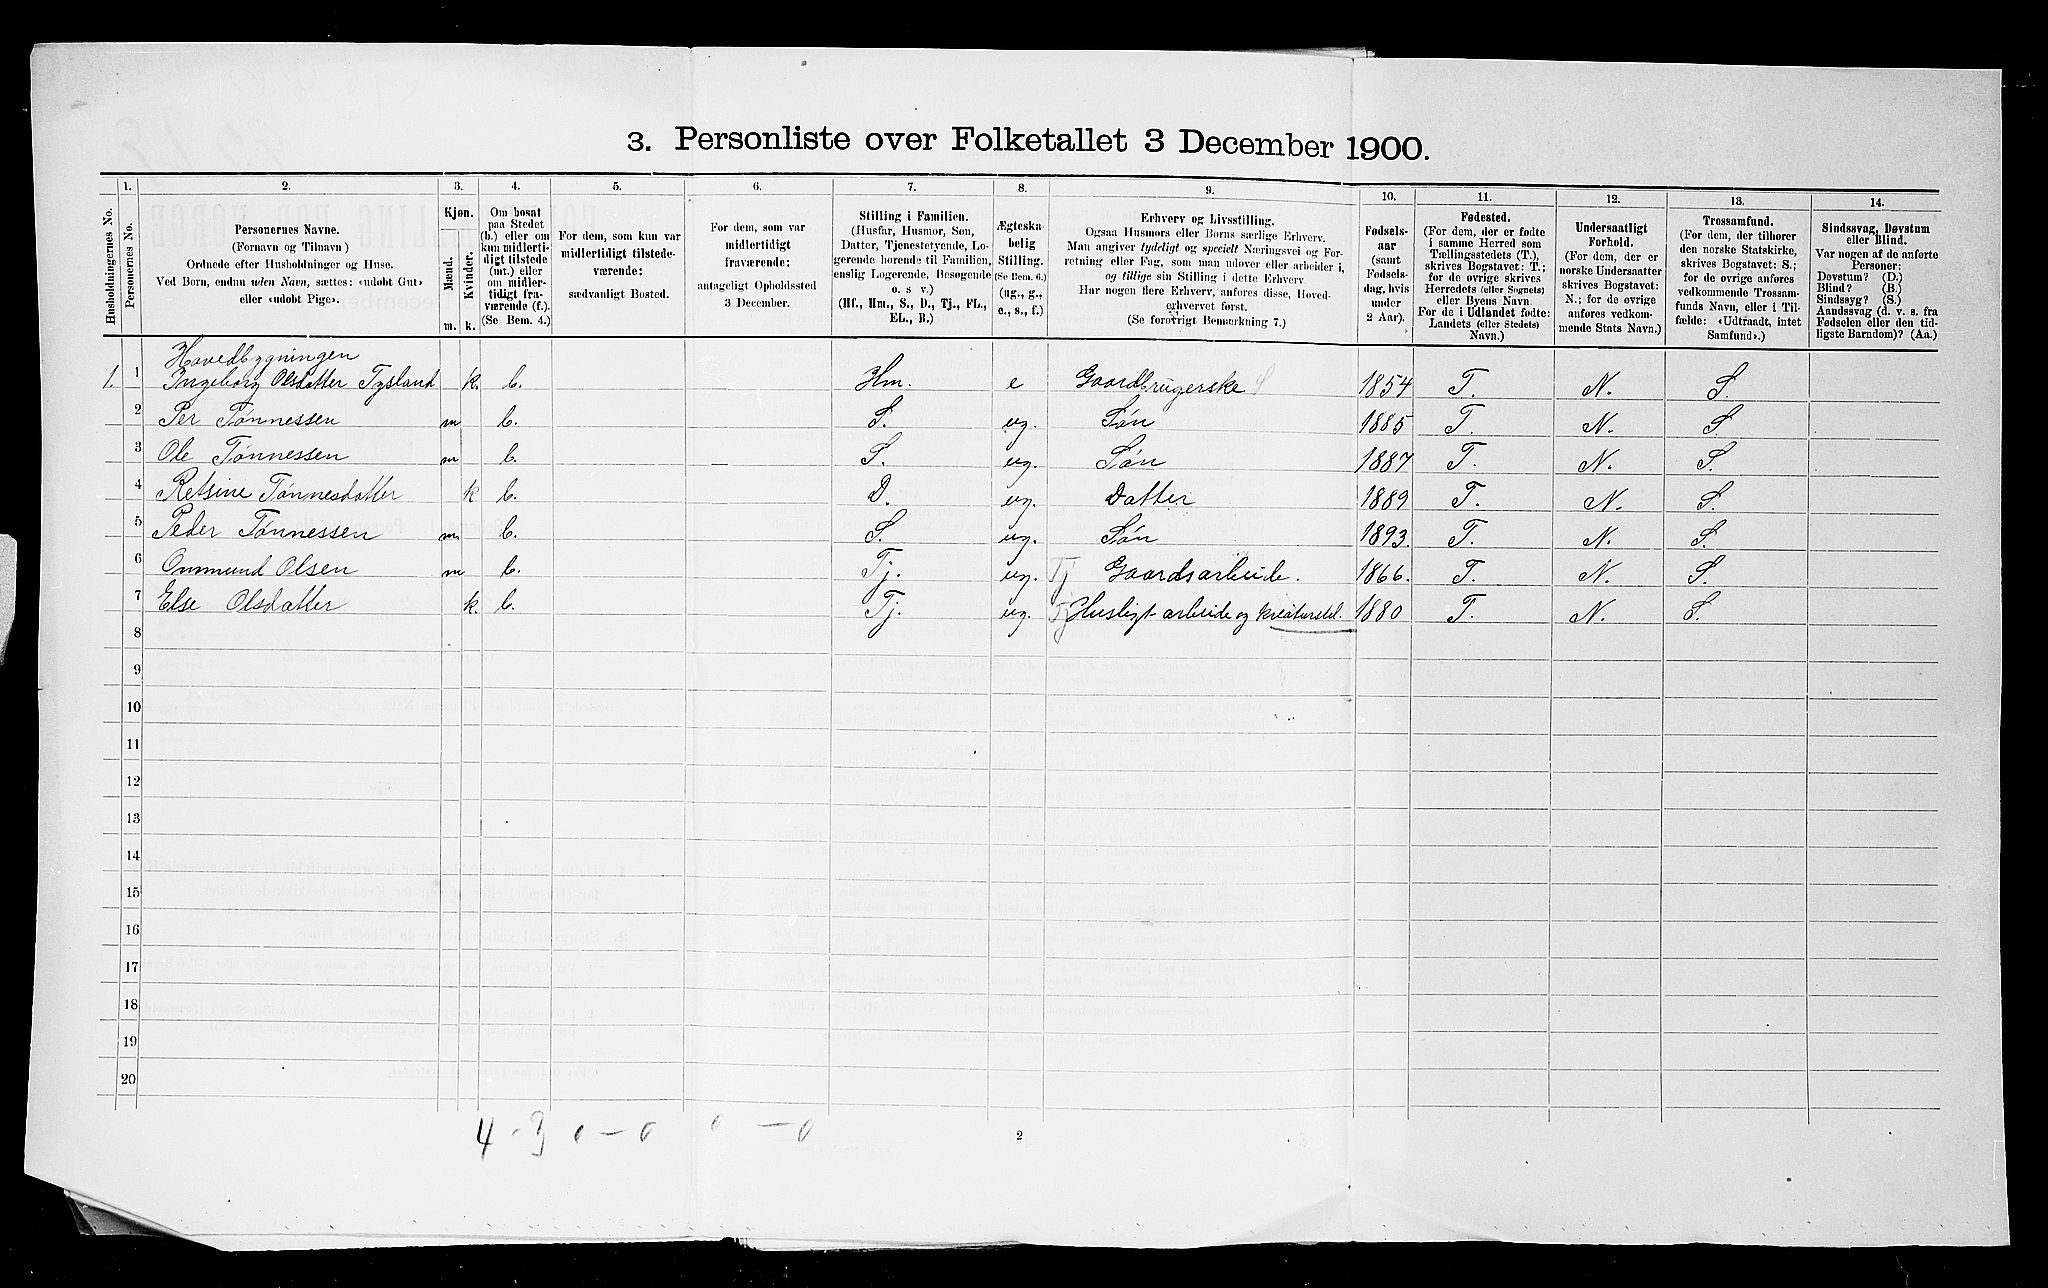 3. Personliste over Folketallet 3 December 1900.
1. 2. 3. 4. 5. 6. 7. 8. 9. 10. 11. 12. 13. 14.
Husholdningernes No.
Personernes No.
Personernes Navne.
(Fornavn og Tilnavn)
Ordnede efter Husholdninger og Huse.
Ved Børn, endnu uden Navn, sættes: «udøbt Gut»
eller «udøbt Pige».
Kjøn.
Mænd.
Kvinder.
m. k.
Om bosat
paa Stedet
(b.) eller om
kun midlerti-
digt tilstede
(mt.) eller
om midler-
tidigt fra-
værende (f.).
(Se Bem. 4.)
For dem, som kun var
midlertidigt tilstede-
værende:
sædvanligt Bosted.
For dem, som var
midlertidigt
fraværende:
antageligt Opholdssted
3 December.
Stilling i Familien.
(Husfar, Husmor, Søn,
Datter, Tjenestetyende, Lo-
gerende hørende til Familien,
enslig Logerende, Besøgende
o. s v.)
(Hf., Hm., S., D., Tj., FL.,
EL., B.)
Ægteska-
belig
Stilling.
(Se Bem. 6.)
(ug., g.,
e., s., f.)
Erhverv og Livsstilling.
Ogsaa Husmors eller Børns særlige Erhverv.
Man angiver tydeligt og specielt Næringsvei og For-
retning eller Fag, som man udøver eller arbeider i,
og tillige sin Stilling i dette Erhverv
Har nogen flere Erhverv, anføres disse, Hoved-
erhvervet først.
(Se forøvrigt Bemærkning 7.)
Fødsels-
aar
(samt
Fødsels-
dag, hvis
under
2 Aar).
Fødested.
(For dem, der er fødte
i samme Herred som
Tællingsstedets (T.),
skrives Bogstavet: T.;
for de øvrige skrives
Herredets (eller Sognets)
eller Byens Navn
For de i Udlandet fødte:
Landets (eller Stedets)
Navn.)
Undersaatligt
Forhold.
(For dem, der er
norske Undersaatter
skrives Bogstavet:
N.; for de øvrige
anføres vedkom-
mende Stats Navn.)
Trossamfund.
(For dem, der tilhører
den norske Statskirke,
skrives Bogstavet: S.;
for de øvrige anføres
vedkommende Trossam-
funds Navn, eller i Til-
fælde: «Udtraadt, intet
Samfund».)
Sindssvag, Døvstum
eller Blind.
Var nogen af de anførte
Personer:
Døvstum? (D.)
Blind? (B.)
Sindssyg? (S.)
Aandssvag (d. v. s. fra
Fødselen eller den tid-
ligste Barndom)? (Aa.)
Hovedbygningen
1. 1 Ingeborg Olsdatter Tysland k. b. Hm. e Gaardbrugerske S 1854 T. N. S.
2 Per Tønnessen m b. S. ug. Søn 1885 T. N. S
3 Ole Tønnessen m b. S. ug. Søn 1887 T. N. S.
4 Retsine Tønnesdatter k b. D. ug. Datter 1889 T. N. S.
5 Peder Tønnessen m. b. S. ug. Søn 1893. T. N. S.
6 Ommund Olsen m b. Tj. ug. Tj Gaardsarbeide. 1866. T. N. S.
7 Else Olsdatter k. b. Tj. ug. Tj Husligt arbeide og kreaturstel. 1880 T. N. S.
8
9
10
11
12
13
14
15
16
17
18
19
20
4 - 3 0 - 0 0 - 0
2